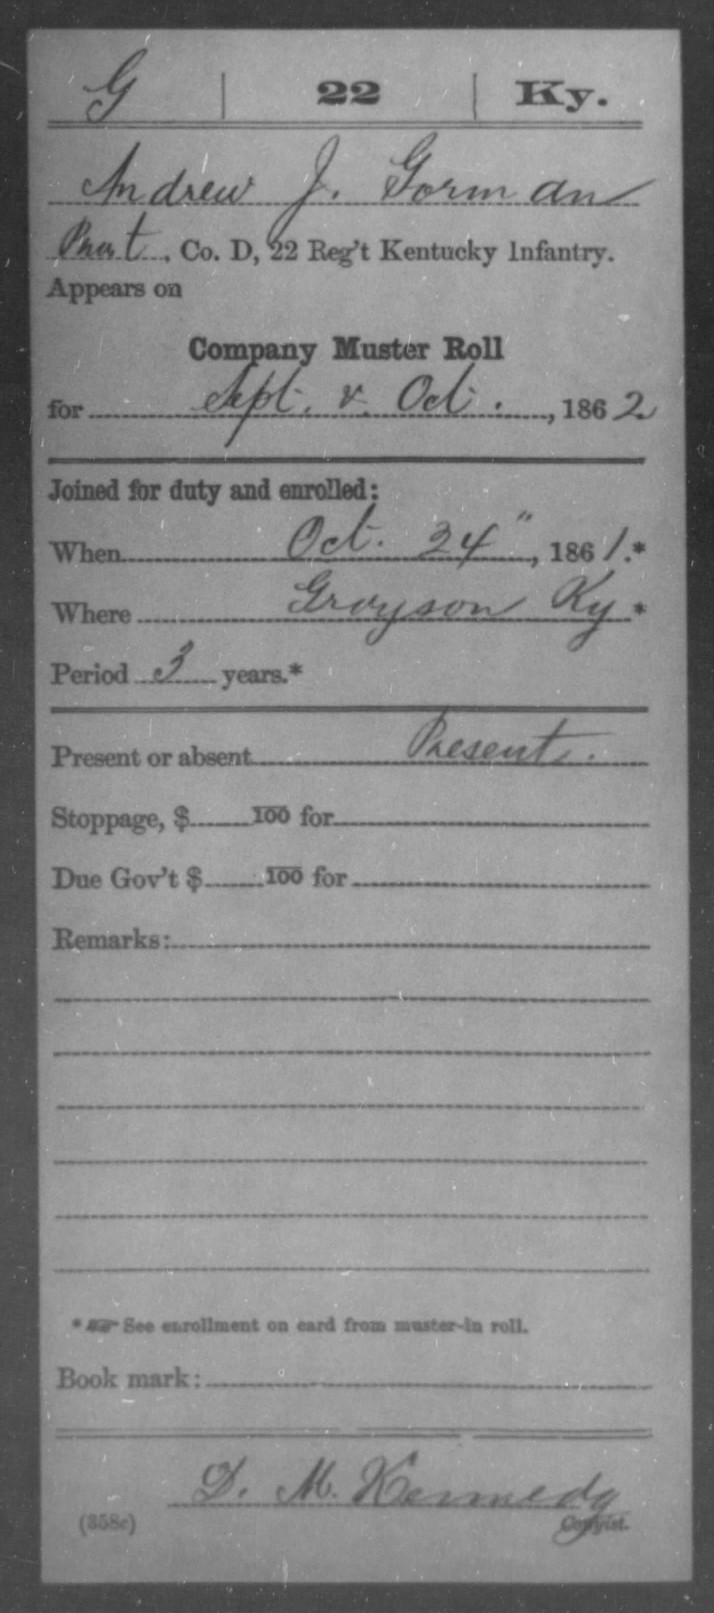 G | 22 | Ky.
Andrew J. Gorman
Privt, Co. D, 22 Reg't Kentucky Infantry.
Appears on
Company Muster Roll
for Sept. & Oct., 1862
Joined for duty and enrolled:
When Oct. 24", 1861.*
Where Grayson Ky *
Period 3 years.*
Present or absent Present.
Stoppage, $ 100 for
Due Gov't $ 100 for
Remarks:
* ☞ See enrollment on card from muster-in roll.
Book mark:
D. M. Kennedy
(358c) Copyist.